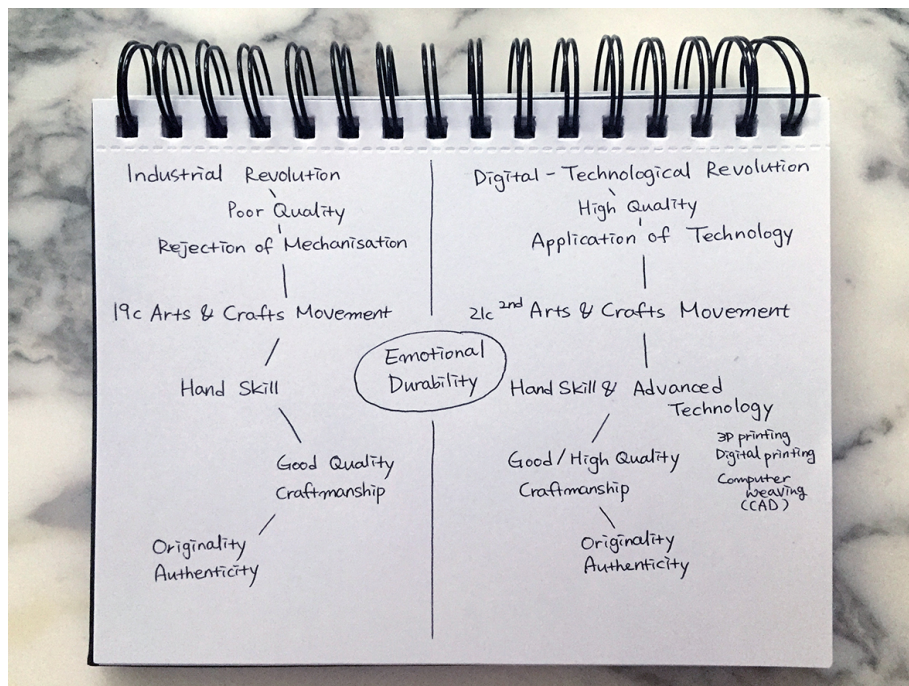 Industrial Revolution
Poor Quality
Rejection of Mechanisation
19c Arts & Crafts Movement
Hand Skill
Good Quality
Craftmanship
Originality
Authenticity
Emotional
Durability
Digital - Technological Revolution
High Quality
Application of Technology
21c 2nd Arts & Crafts Movement
Hand Skill & Advanced
Technology
3D printing
Digital printing
Computer
weaving
(CAD)
Good/High Quality
Craftmanship
Originality
Authenticity